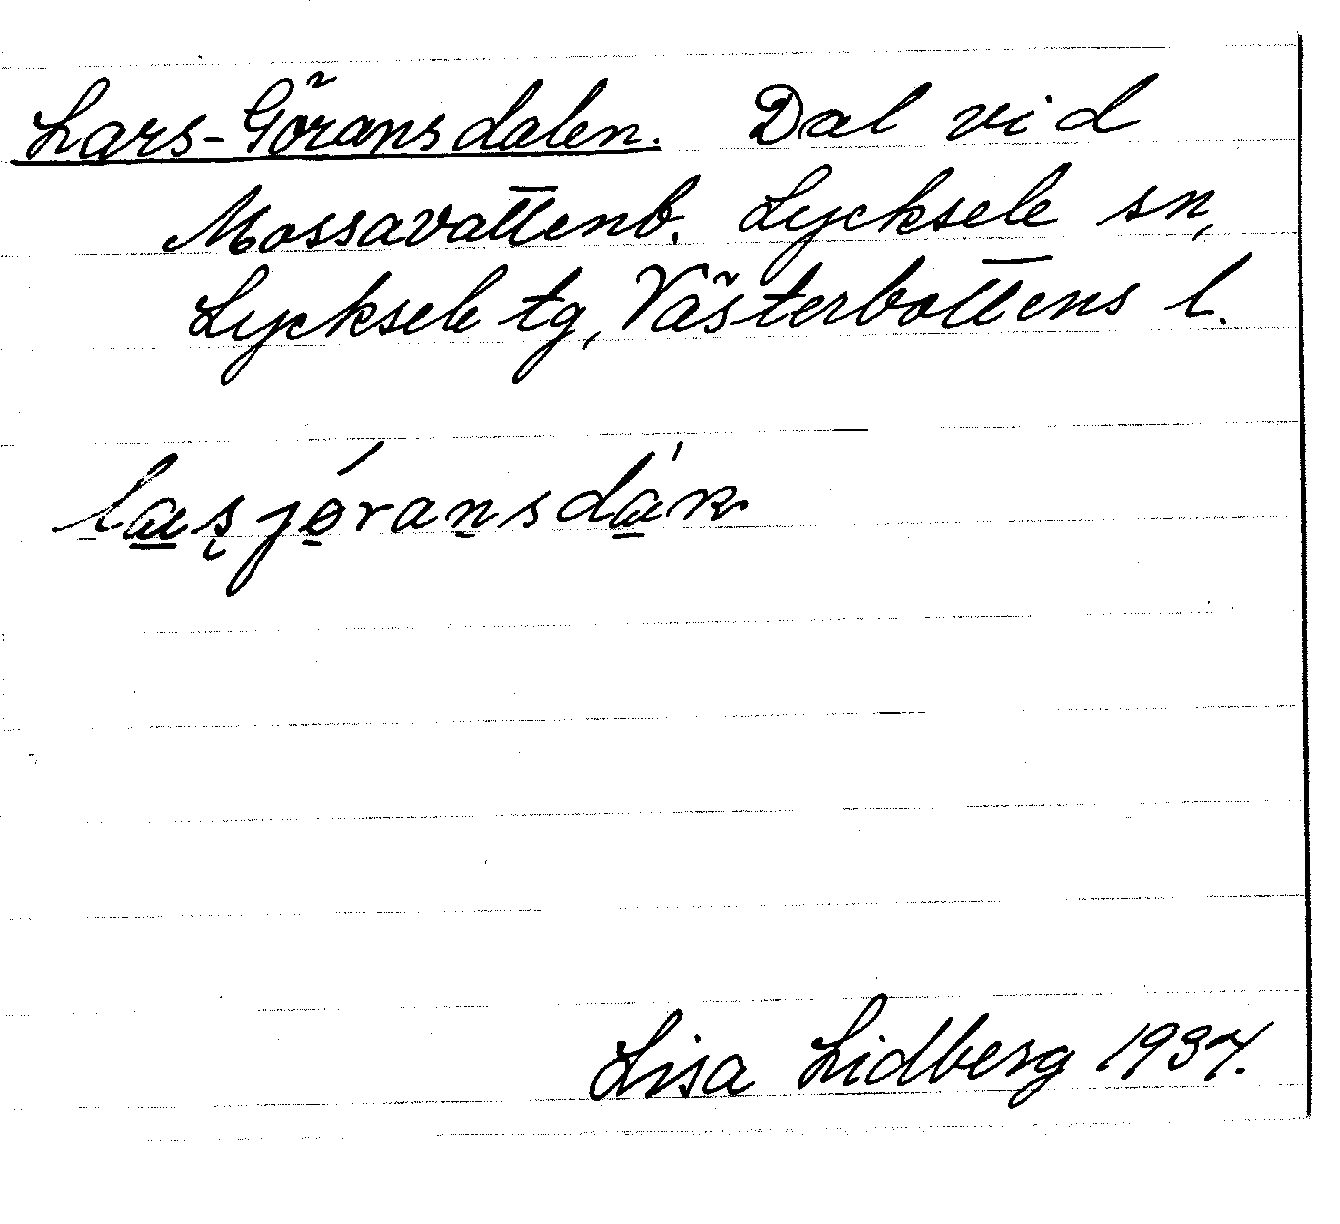 Lars-Göransdalen. Dal vid
Mossavattenb. Lycksele sn,
Lycksele tg, Västerbottens l.
Lisa Lidberg 1937.